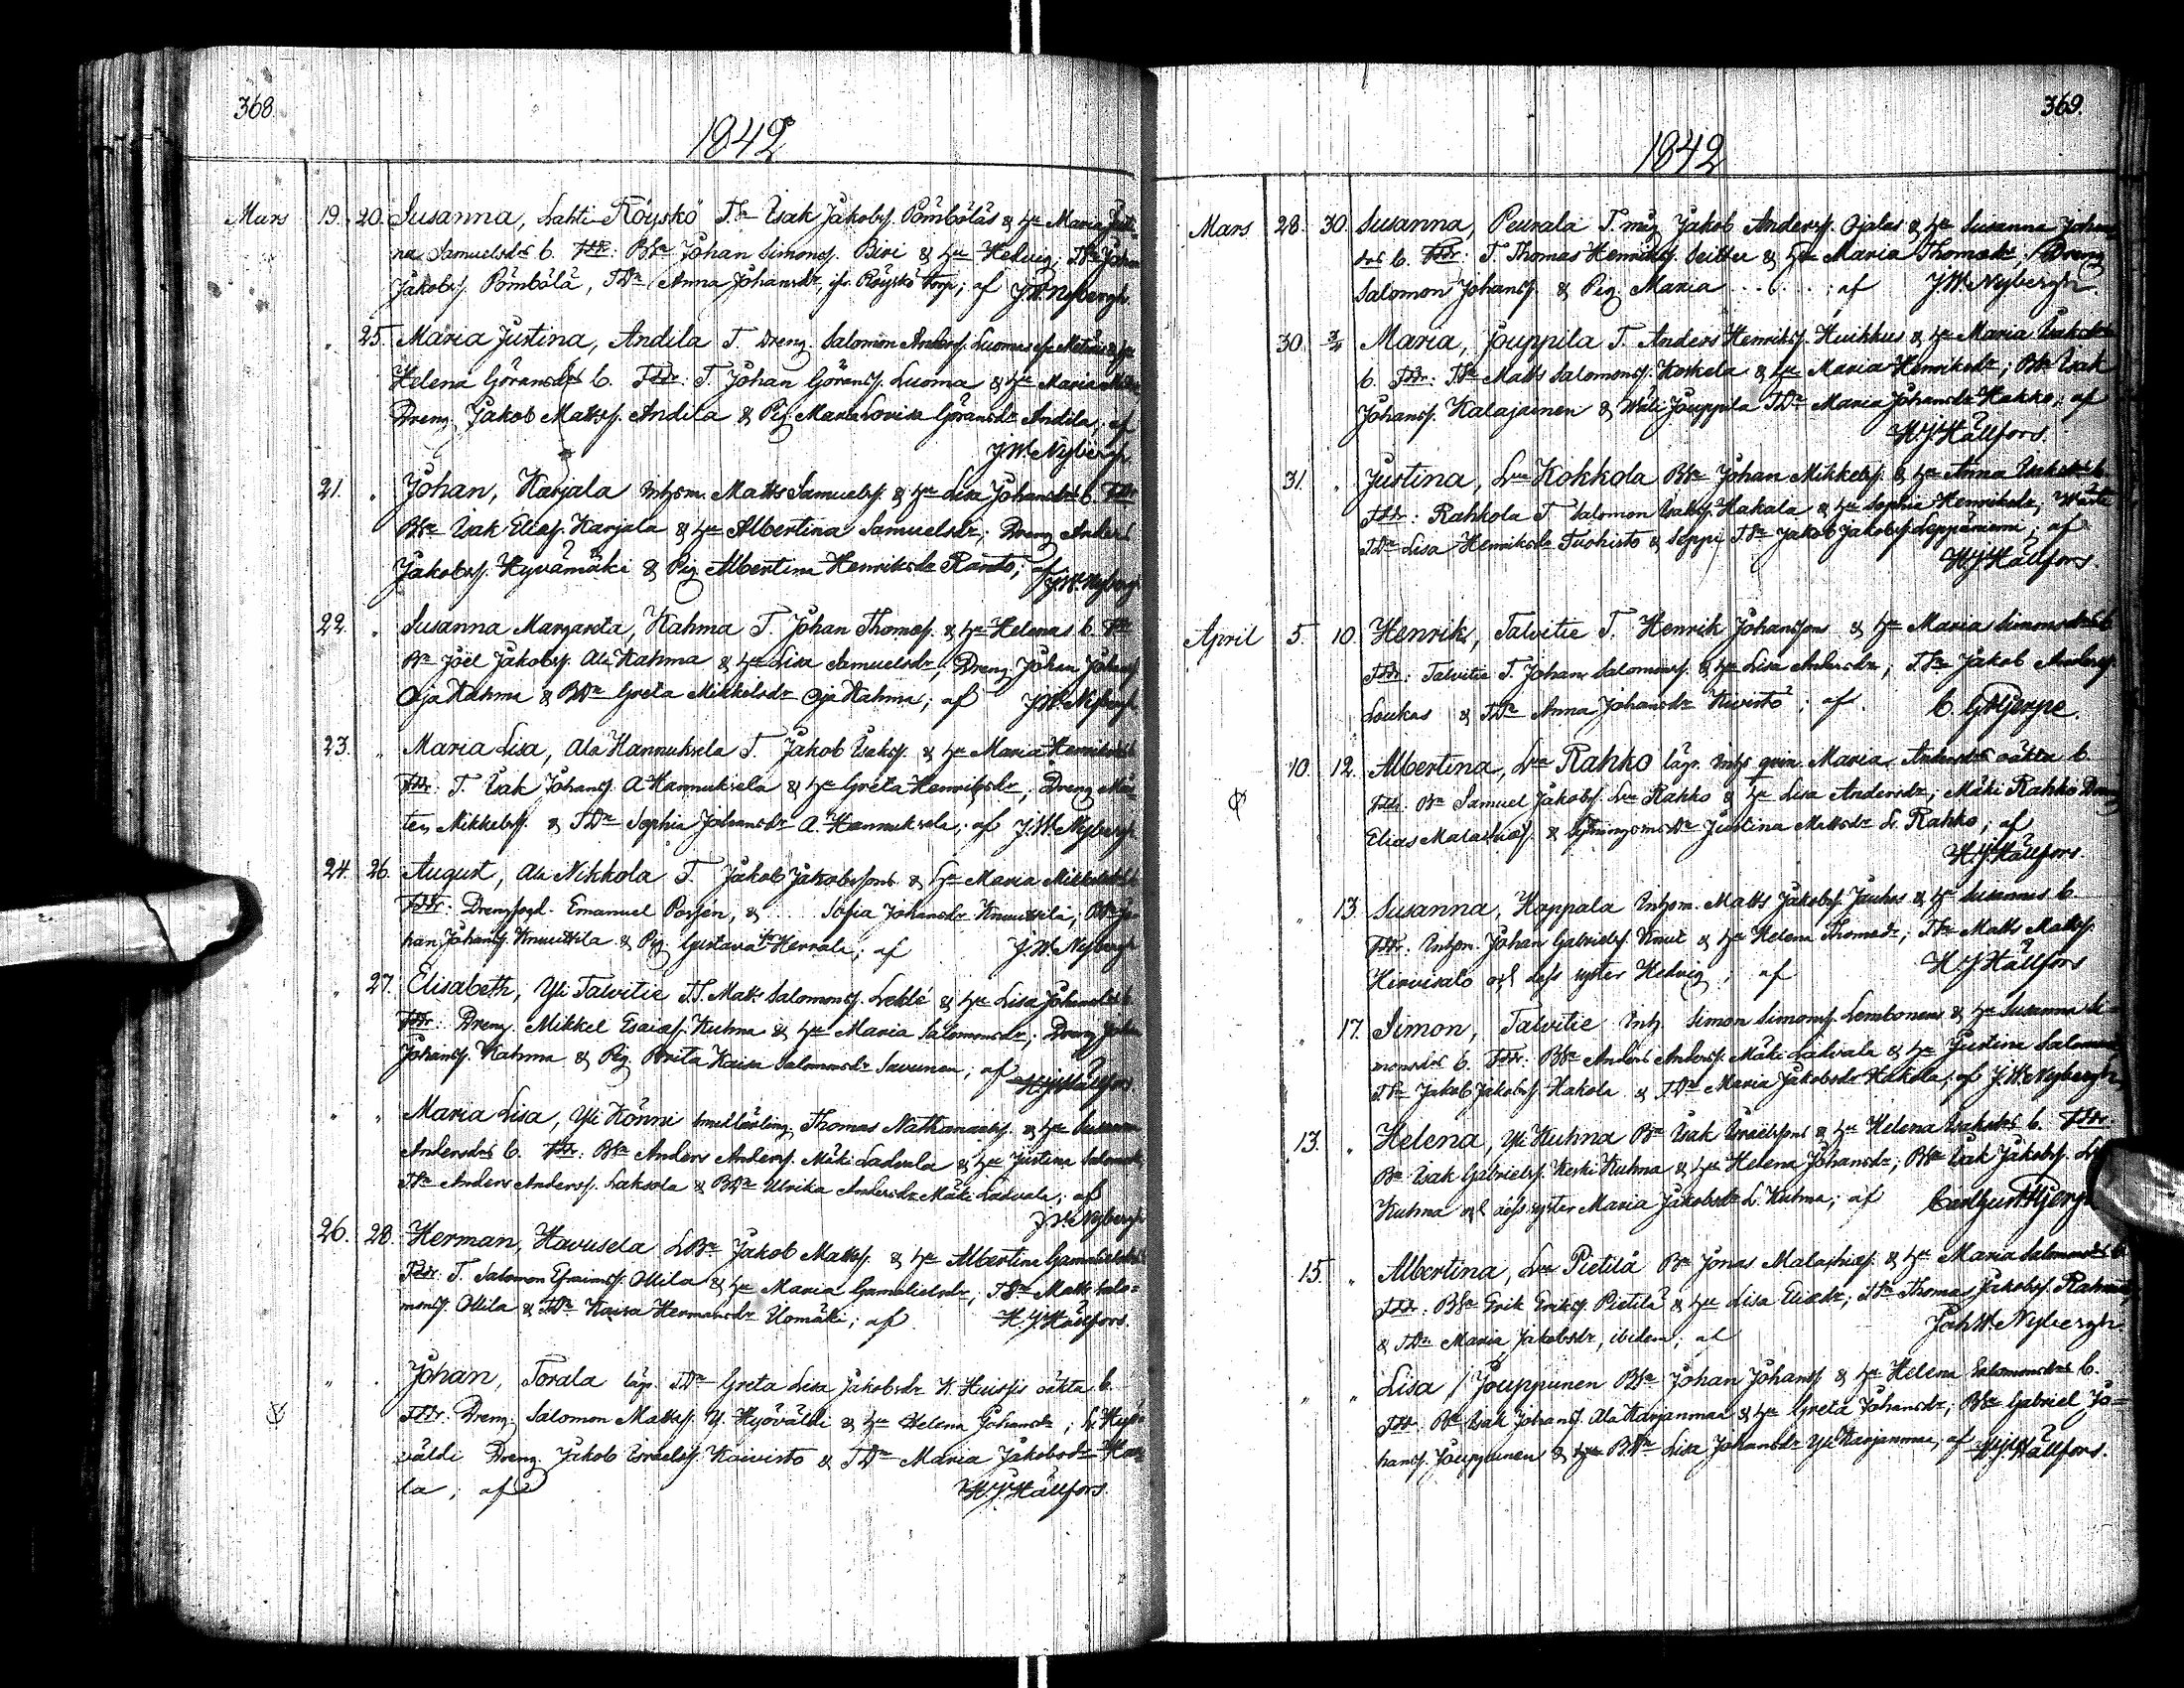 368.
1842
Mars 19. 20. Susanna, Lahti Röyskö T.Sn Isak Jakobss. Pömböläs & Hu Maria Justi-
na Samuelsdrs b. Fddr: BSn Johan Simonss. Biri & Hu Hedvig; TSn Johan
Jakobss. Pömbölä, TDr Anna Johansdr, ifr. Röyskö torp; af J.W. Nybergh.
" 25. Maria Justina, Andila T. Dreng. Salomon Anderss. Luomas & Hu
Helena Göransdrs b. Fddr: T. Johan Göranss. Luoma & Hu Maria
Dreng Jakob Matts. Andila & Pig Maria Lovisa Göransdr Andila, af
J.W. Nybergh.
21. " Johan, Karjala Inhsm. Matts Samuelss. & Hu Lisa Johansdrs b. Fddr
BSn Isak Eliass. Karjala & Hu Albertina Samuelsdr; Dreng Anders
Jakobss. Hyvämäki & Pig Albertina Henriksdr Ranto; af J.W. Nybergh
22. " Susanna Margareta, Kahma T. Johan Thomass. & Hu Helenas b. Fddr
Bn Joël Jakobss. Ala Kahma & Hu Lisa Samuelsdr; Dreng Johan Johanss
Oja Kahma & BDr Greta Mikkelsdr Oja Kahma; af J.W. Nybergh
23. " Maria Lisa, Ala Hannuksela T. Jakob Isakss. & Hu Maria Henriksdrs b.
Fddr: T. Isak Johanss. A Hannuksela & Hu Greta Henriksdr; Dreng Mår-
ten Mikkelss. & TDr Sophia Johansdr A. Hannuksela; af J.W. Nybergh
24. 26. August, Ala Nikkola T. Jakob Jakobssons & Hu Maria Mikkelsdrs b.
Fddr: Drengfogd. Emanuel Porsén, & ... Sofia Johansdr Knuuttila; BSn Jo-
han Johanss. Knuuttila & Pig Gustava Herrala; af J.W. Nybergh
" 27. Elisabeth, Yli Talvitie TS. Matts Salomonss. & Hu Lisa Johansdrs b.
Fddr: Dreng. Mikkel Esaiass. Kuhna & Hu Maria Salomonsdr; Dreng Johan
Johanss. Kahma & Pig. Brita Kaisa Salomonsdr Savunen; af H.J. Hällfors
" " Maria Lisa, Yli Könni Smedlärling Thomas Nathanaelss. & Hu Susanna
Andersdrs b. Fddr: BSn Anders Anderss. Mäki Ladvala & Hu Justina Salomonsdr
TSn Anders Anderss. Laksola & BDr Ulrika Andersdr Mäki Ladvala; af
J.W. Nybergh
26. 28. Herman, Havusela LBn Jakob Matts. & Hu Albertina Gamalielsdrs b.
Fddr: T. Salomon Efraimss. Ollila & Hu Maria Gamalielsdr; TSn Matts Salo-
monss. Ollila & TDr Kaisa Hermansdr Uomäki; af H.J. Hällfors.
" " Johan, Torala läg. TDr Greta Lisa Jakobsdr K. Huissis oäkta b.
Fddr. Dreng. Salomon Matts. Y. Hyövälti & Hu Helena Johansdr; L. Hyö-
väldi Dreng. Jakob Israelss. Koivisto & TDr Maria Jakobsdr
la; af H.J. Hällfors.
369.
1842
Mars 28. 30. Susanna, Peurala T. måg Jakob Anderss. Ojalas & Hu Susanna Johans-
drs b. Fddr: T. Thomas Henrikss. Seittu & Hu Maria Thomasdr; Dreng
Salomon Johanss. & Pig. Maria . . . . ; af J.W. Nybergh.
30. 3/4 Maria, Jouppila T. Anders Henrikss. Huikkus & Hu Maria Isaksdrs
b. Fddr: TSn Matts Salomonss. Koskela & Hu Maria Henriksdr; BSn Isak
Johanss. Kalajainen & Wäli Jouppila TDr Maria Johansdr Hakko; af
H.J. Hällfors.
31. " Justina, Lu Kokkola BSn Johan Mikkelss. & Hu Anna Isaksdrs b.
Fddr: Rahkola T. Salomon Isakss. Hakala & Hu Sophia Henriksdr,
TDr Lisa Henriksdr Tuohisto & Seppi TSn Jakob Jakobss. Leppäniemi; af
H.J. Hällfors.
April 5. 10. Henrik, Talvitie T. Henrik Johanssons & Hu Maria Simonsdrs b
Fddr: Talvitie T. Johan Salomonss. & Hu Lisa Andersdr; TSn Jakob Anderss.
Loukas & TDr Anna Johansdr Kivistö; af C. G. Hjerpe.
10. 12. Albertina, Lu Rahko läg. Inhs qvin. Maria Andersdrs oäkta b.
Fddr. Bn Samuel Jakobss. Lu Rahko & Hu Lisa Andersdr; Mäki Rahko Dreng
Elias Malachiass. & Sytningsms Dr Justina Mattsdr L. Rahko; af
H.J. Hällfors.
" 13. Susanna, Hoppala Inhsm. Matts Jakobss. Jauhos & Hu Susannas b.
Fddr: Inhsm. Johan Gabrielss. Knut & Hu Helena Thomasdr; TSn Matts Matts.
Hirvisalo och dess syster Hedvig; af H.J. Hällfors
" 17. Simon, Talvitie Inh. Simon Simonss. Lembonens & Hu Susanna Si-
monsdrs b. Fddr: BSn Anders Anderss. Mäki Ladvala & Hu Justina Salomonsdr
TSn Jakob Jakobss. Hakola & TDr Maria Jakobsdr Hakola; af J.W. Nybergh
13. " Helena, Yli Kuhna Bn Isak Israelssons & Hu Helena Isaksdrs b. Fddr:
Bn Isak Gabrielss. Keski Kuhna & Hu Helena Johansdr; BSn Isak Jakobss.
Kuhna och dess syster Maria Jakobsdr L. Kuhna; af Carl Gust Hjerpe
15. " Albertina, Lu Pietilä Bn Jonas Malachiass. & Hu Maria Salomonsdrs b.
Fddr: BSn Erik Erikss. Pietilä & Hu Lisa Eliasdr; TSn Thomas Jakobss.
& TDr Maria Jakobsdr, ibidem; af Joh W. Nybergh.
" " Lisa, Jouppunen BSn Johan Johanss & Hu Helena Salomonsdrs b.
Fddr. Bn Isak Johanss. Ala Karjanmaa & Hu Greta Johansdr; BSn Gabriel Jo-
hanss. Jouppunen & BDr Lisa Johansdr Yli Karjanmaa; af H.J. Hällfors.